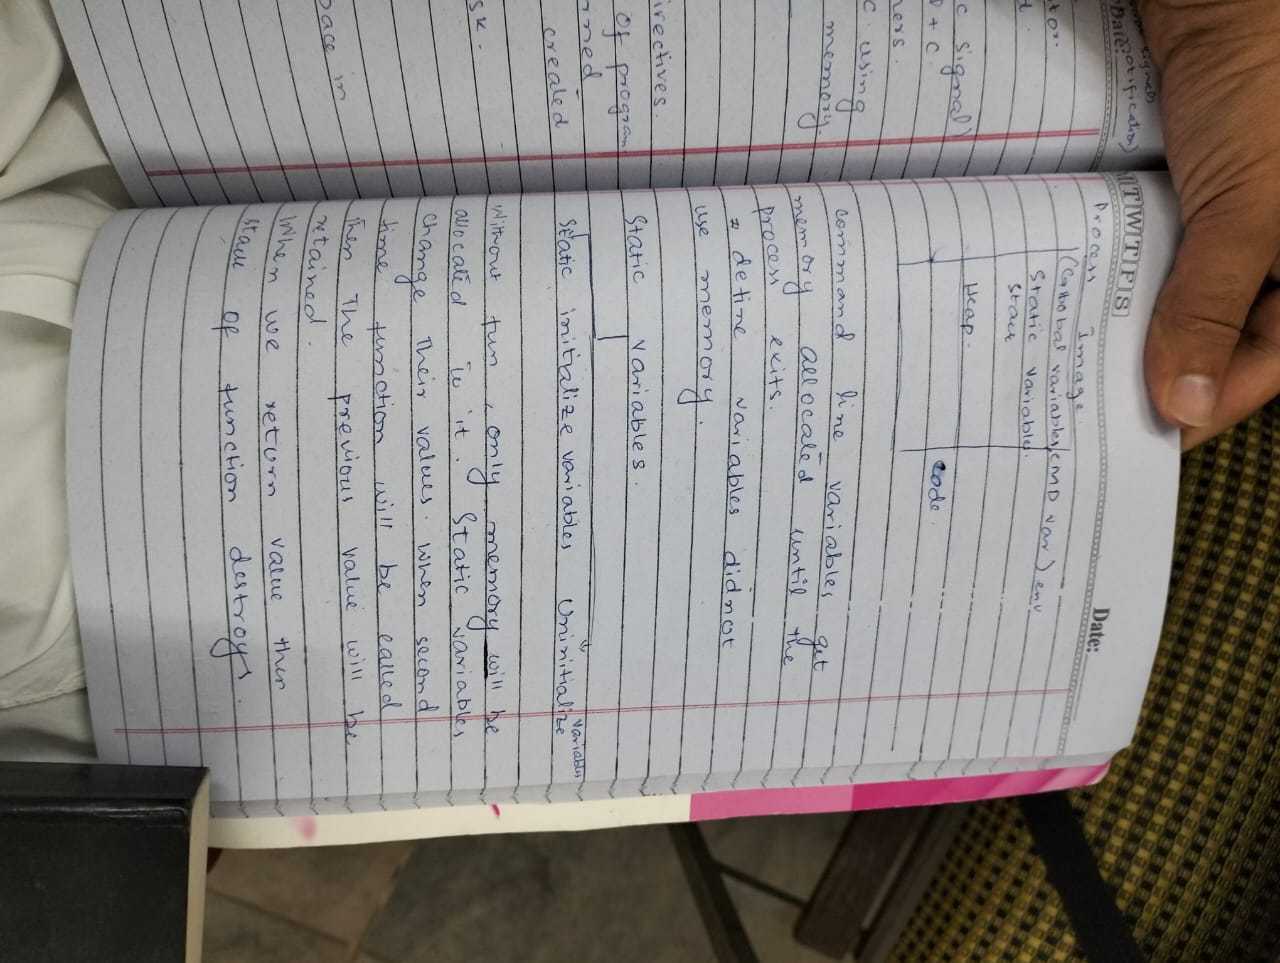 signals
Date:
otification)
tor.
d.
c signal)
P + C.
ners.
C using
memory.
irectives.
of program
rned
created
sk.
pace in
MTWTFS
Date:
Process Image.
(Gallobal variables, CMD var) env
Static variables.
Stack
Heap.
code.
command line variables get
memory allocated until the
process exits.
# define variables didnot
use memory.
Static variables.
Static initialize variables Uninitialize variables
Without fun, only memory will be
allocated to it. Static variables
change their values. When second
time function will be called
Then The previous value will be
retained.
When we return value then
stack of function destroys.